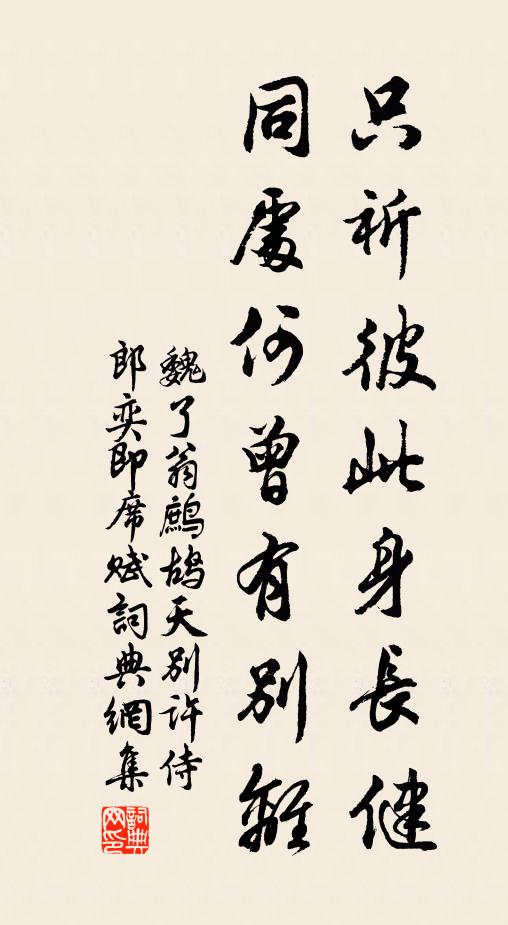 只祈彼此身長健
同處何曾有別離
魏了翁鷓鴣天別許侍
郎奕即席賦詞典網集
詞典網印